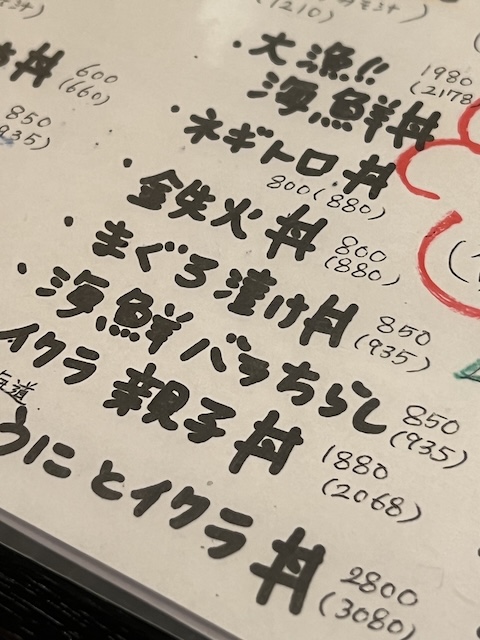 (1210)
丼 600
(660)
850
(935)
・大漁!!
海鮮丼 1980
(2178
・ネギトロ丼
800(880)
・鉄火丼 800
(880)
・まぐろ漬け丼 850
(935)
・海鮮バラちらし 850
(935)
イクラ親子丼 1880
(2068)
道
うにとイクラ丼 2800
(3080)